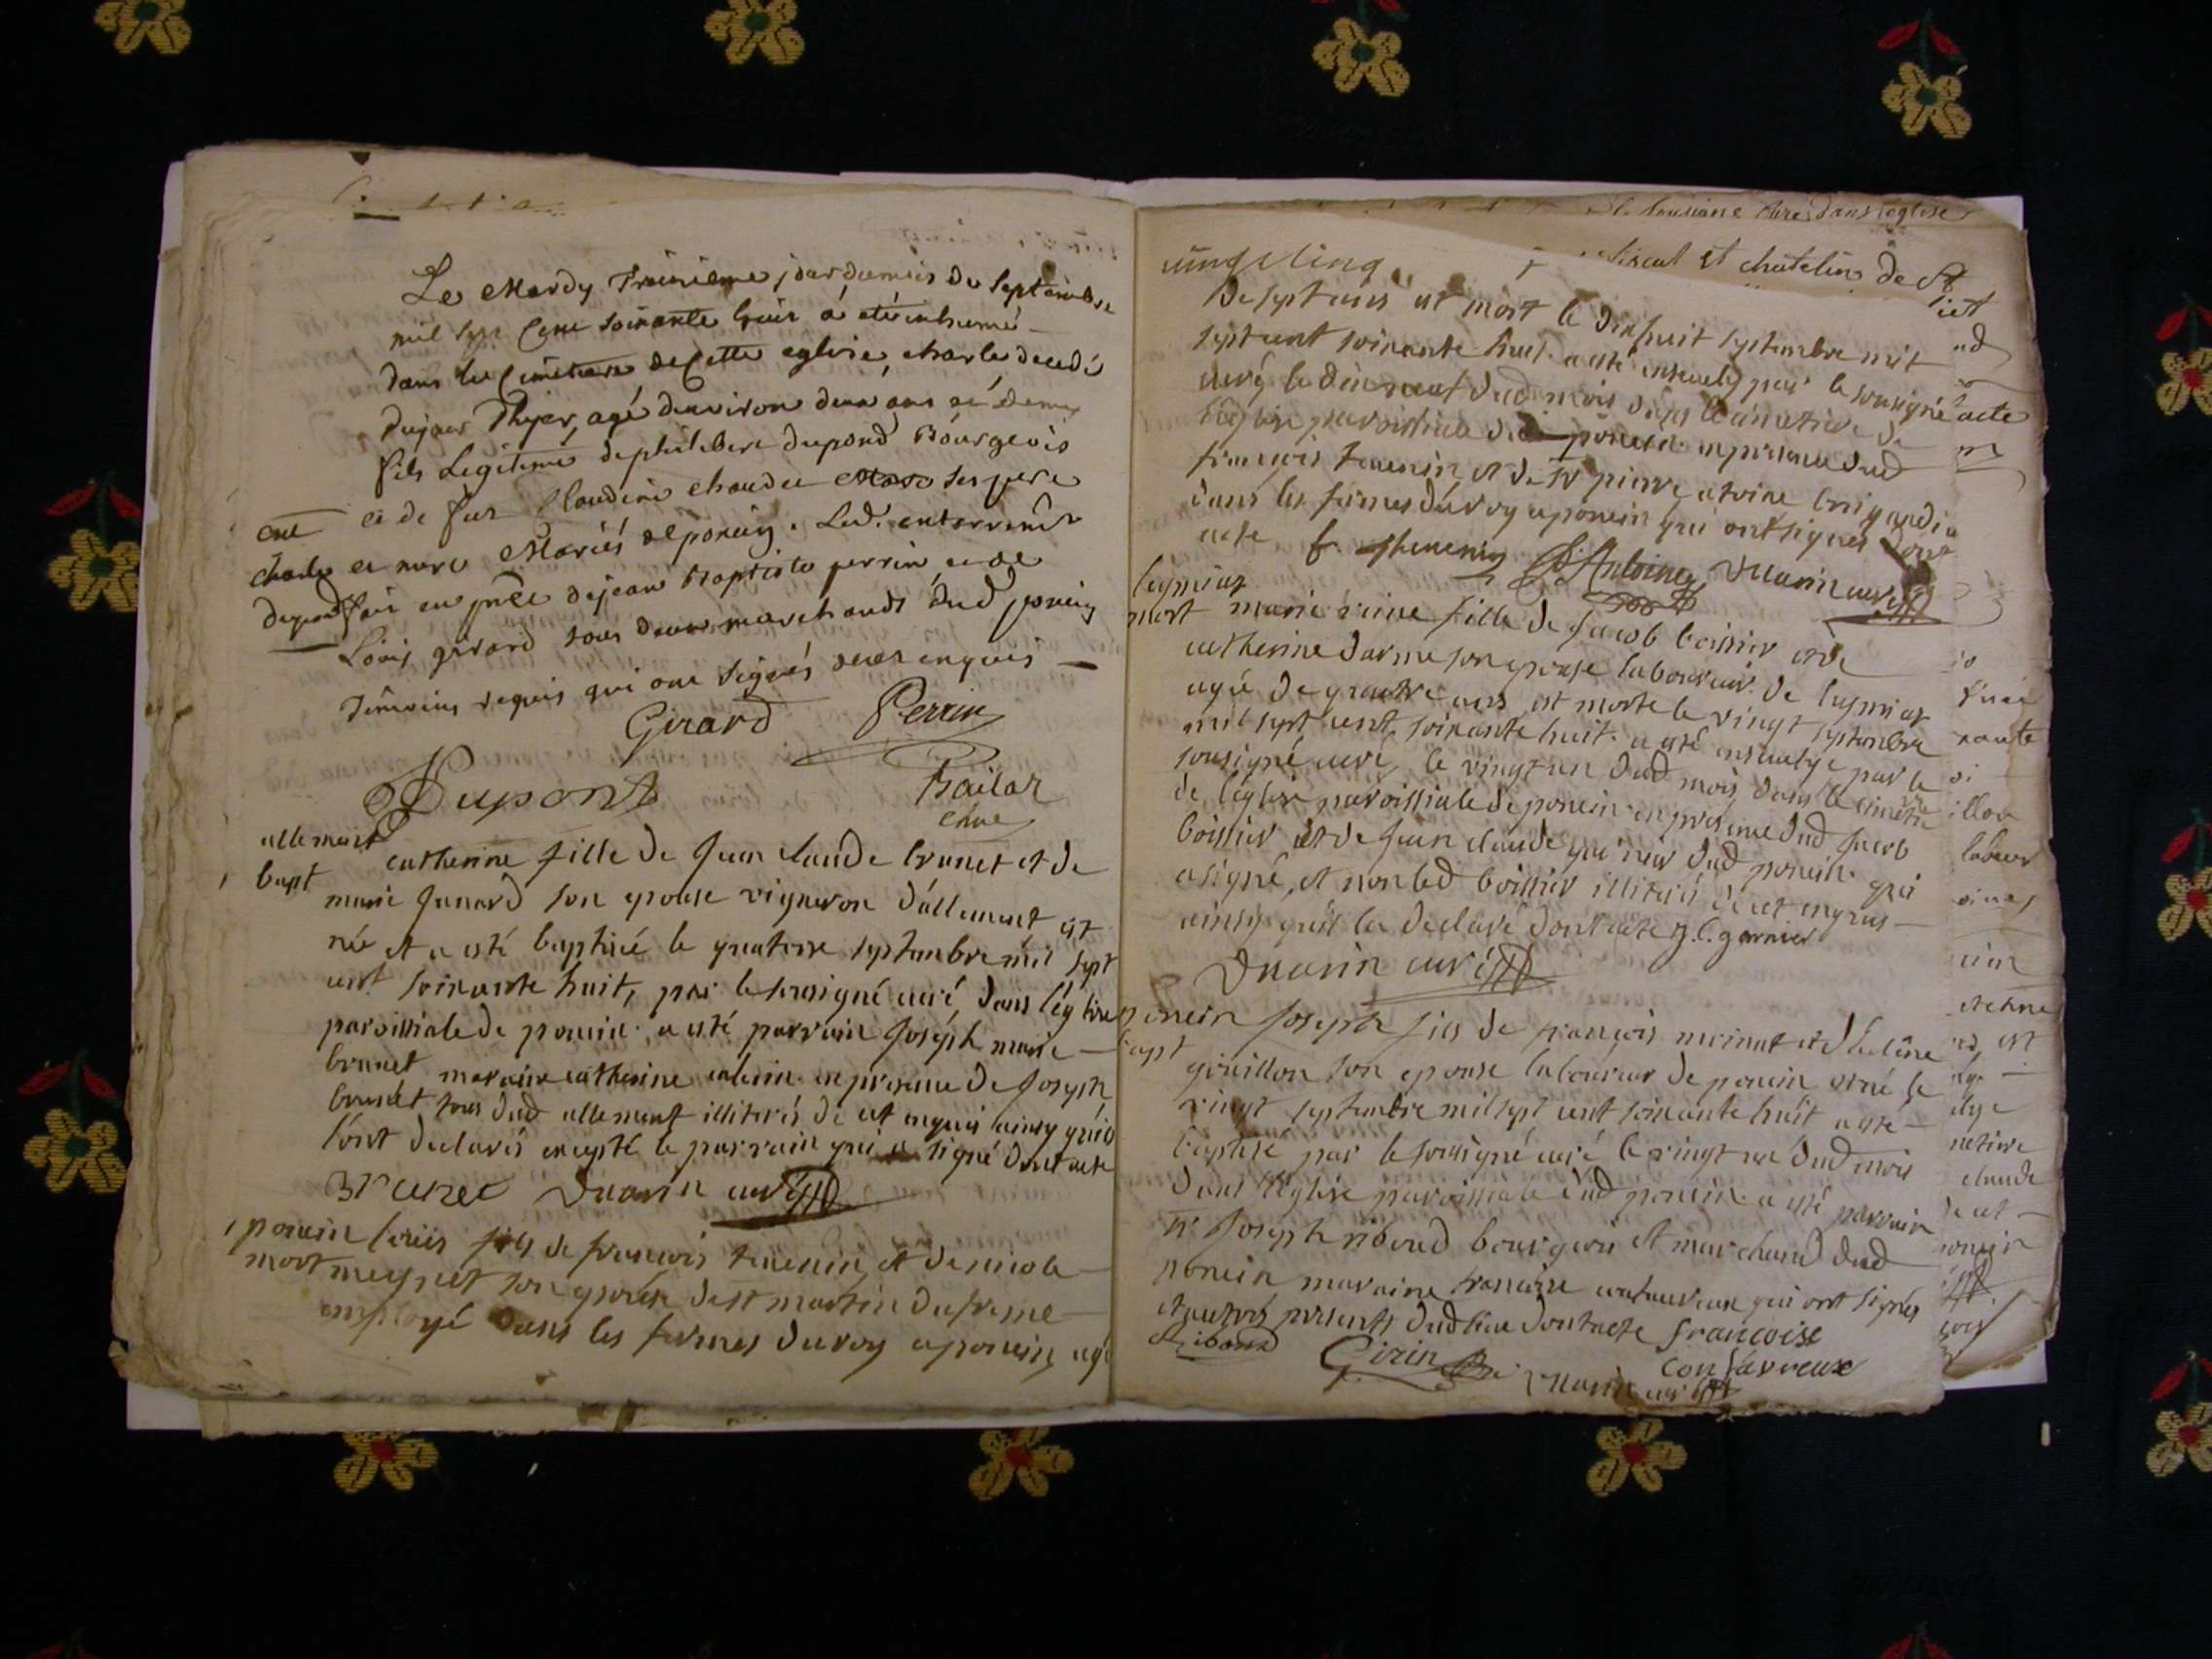 Le Mardy Treizieme jour du mois de Septembre
mil sept cent soixante huit a été inhumé
dans le cimetiere de cette eglise, charle decedé
du jour d'hyer, agé d'environ deux ans et demy
fils Legitime de philibert dupond Bourgeois
ent et de fut Claudine chaudee ses pere
charle et mere Mariés de poncin. Led. enterrement
dupond fait en pnce de jean Baptiste perrin et de
Loüis girard tous deux marchands dud poncin
Témoins requis qui ont signés de ce enquis
Girard Perrin
Dupont Bailat
allemant catherine fille de jean claude brunet et de
bapt marie junard son epouse vigneron d'allemant est
née et a esté baptisée le quatorze septembre mil sept
cent soixante huit, par le sousigné curé, dans l'eglise
paroissiale de poncin. a esté parrain joseph marie
brunet maraine catherine en presence de joseph
brunet tous dud allemant illiterés de ce enquis ainsy qu'ils
l'ont declarés excepté le parrain qui a signé dont acte
Brunet Duarin curé
poncin loüis fils de françois tenenin et de nicole
mort meynet son epouse de st martin dufrene
employé dans les fermes du roy a poncin agé
sousigné Curé dans l'eglise
fiscal et chatelin de
de sept ans est mort le dixhuit septembre mil
sept cent soixante huit. a esté ensevely par le sousigné
curé le dix neuf dud mois dans le cimetiere de
l'eglise paroissiale de poncin en presence dud
françois tenenin et de sr pierre atoine brigardie
dans les fermes du roy a poncin qui ont signés dont
acte f. thenenin Antoine Duarin curé
leymiat
mort marie rine fille de jacob boissier et de
catherine darme son epouse laboureur de leymiat
agée de quatre ans est morte le vingt septembre
mil sept cent soixante huit. a esté ensevelye par le
sousigné curé le vingt un dud mois dans le cimetiere
de l'eglise paroissiale de poncin en presence dud jacob
boissier et de jean claude garnier dud poncin qui
a signé, et non led boissier illiteré de ce enquis
ainsy qu'il la declaré dont acte J. C. garnier
Duarin curé
poncin joseph fils de françois moinat et d'helêne
bapt goüillon son epouse laboureur de poncin est né le
vingt septembre mil sept cent soixante huit a esté
baptisé par le sousigné curé le vingt un dud mois
dans l'eglise paroissiale dud poncin. a esté parrain
sr joseph riboud bourgeois et marchand dud
poncin maraine françoise confavreux qui ont signés
et autres presents dud lieu dont acte françoise
Riboud Girin confavreux
Duarin curé